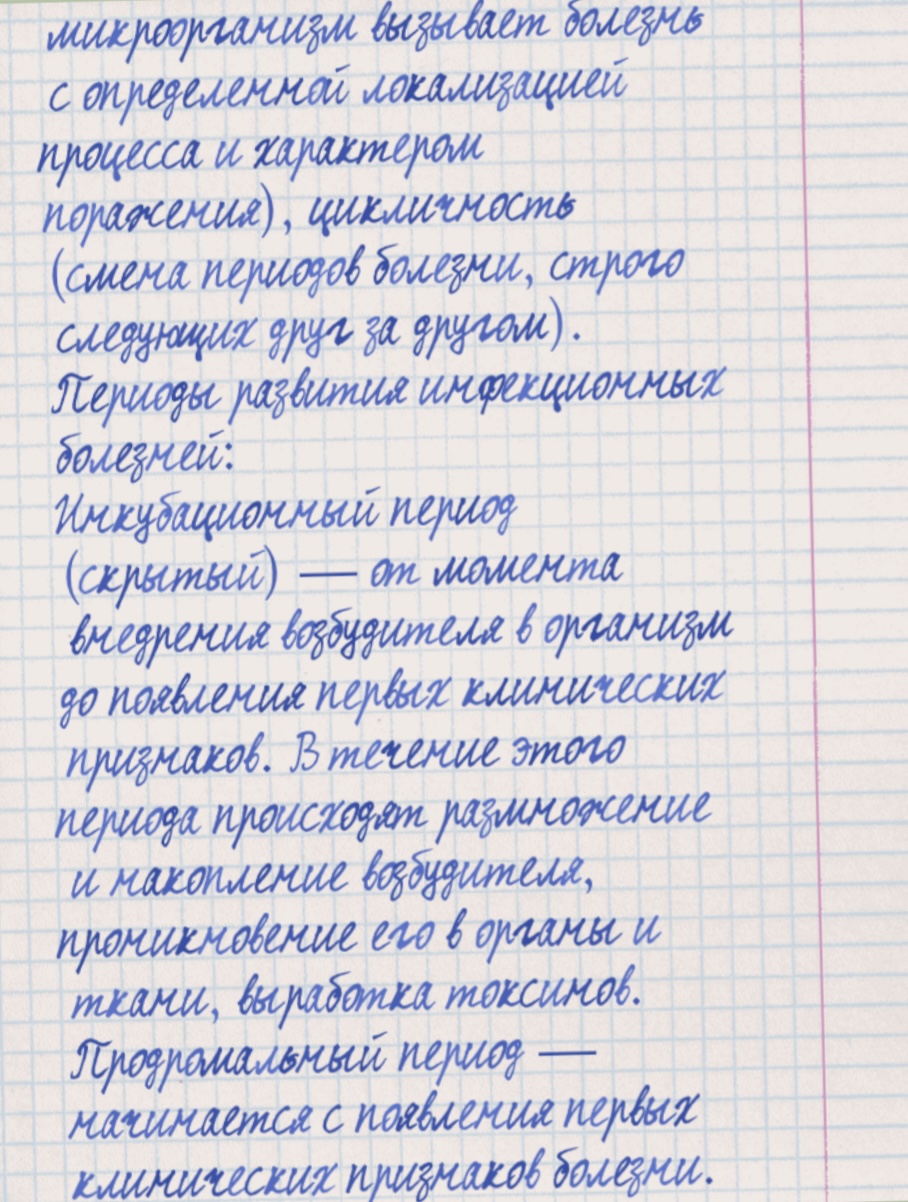 микроорганизм вызывает болезнь
с определенной локализацией
процесса и характером
поражения), цикличность
(смена периодов болезни, строго
следующих друг за другом).
Периоды развития инфекционных
болезней:
Инкубационный период
(скрытый) — от момента
внедрения возбудителя в организм
до появления первых клинических
признаков. В течение этого
периода происходят размножение
и накопление возбудителя,
проникновение его в органы и
ткани, выработка токсинов.
Продромальный период —
начинается с появления первых
клинических признаков болезни.